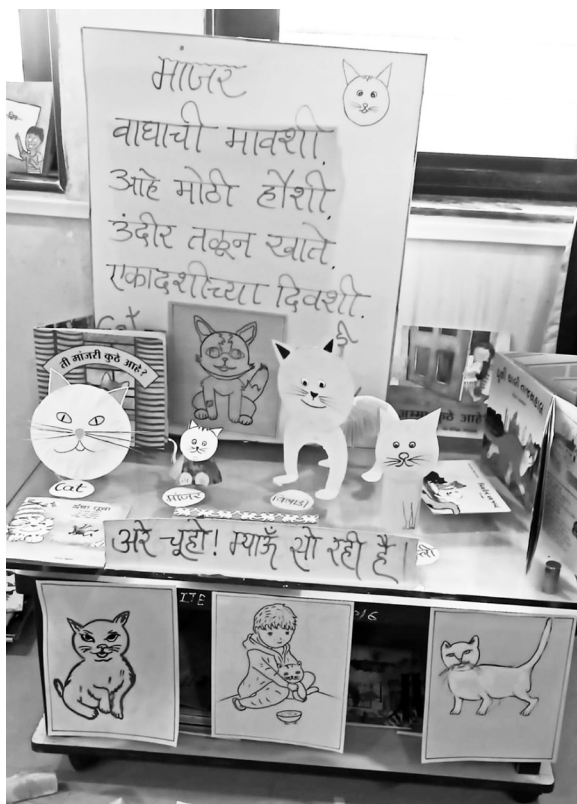 मांजर
वाघाची मावशी,
आहे मोठी हौशी,
उंदीर तळून खाते,
एकादशीच्या दिवशी.
Cat
ती मांजरी कुठे आहे?
कुठे आहे
Cat
मांजर
अरे चूहो! म्याऊँ सो रही है!